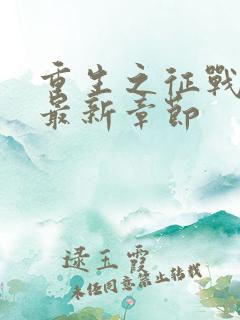 重生之征戰
最新章節
逯玉霞
未经同意禁止转载